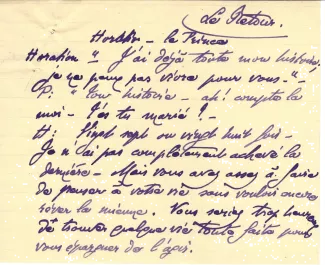 Le Retour.
Horatio – le Prince
Horatio " J'ai déjà toute mon histoire,
je ne peux pas vivre pour vous – "
P: " Ton histoire – ah! conte la
moi – T'es tu marié? –
H: Vingt sept ou vingt huit fois –
Je n'ai pas complètement achevé la
dernière – Mais vous avez assez à faire
de penser à votre vie sans vouloir encore
la mienne. Vous seriez trop heureux
de trouver quelque vie toute faite pour
vous épargner de l'